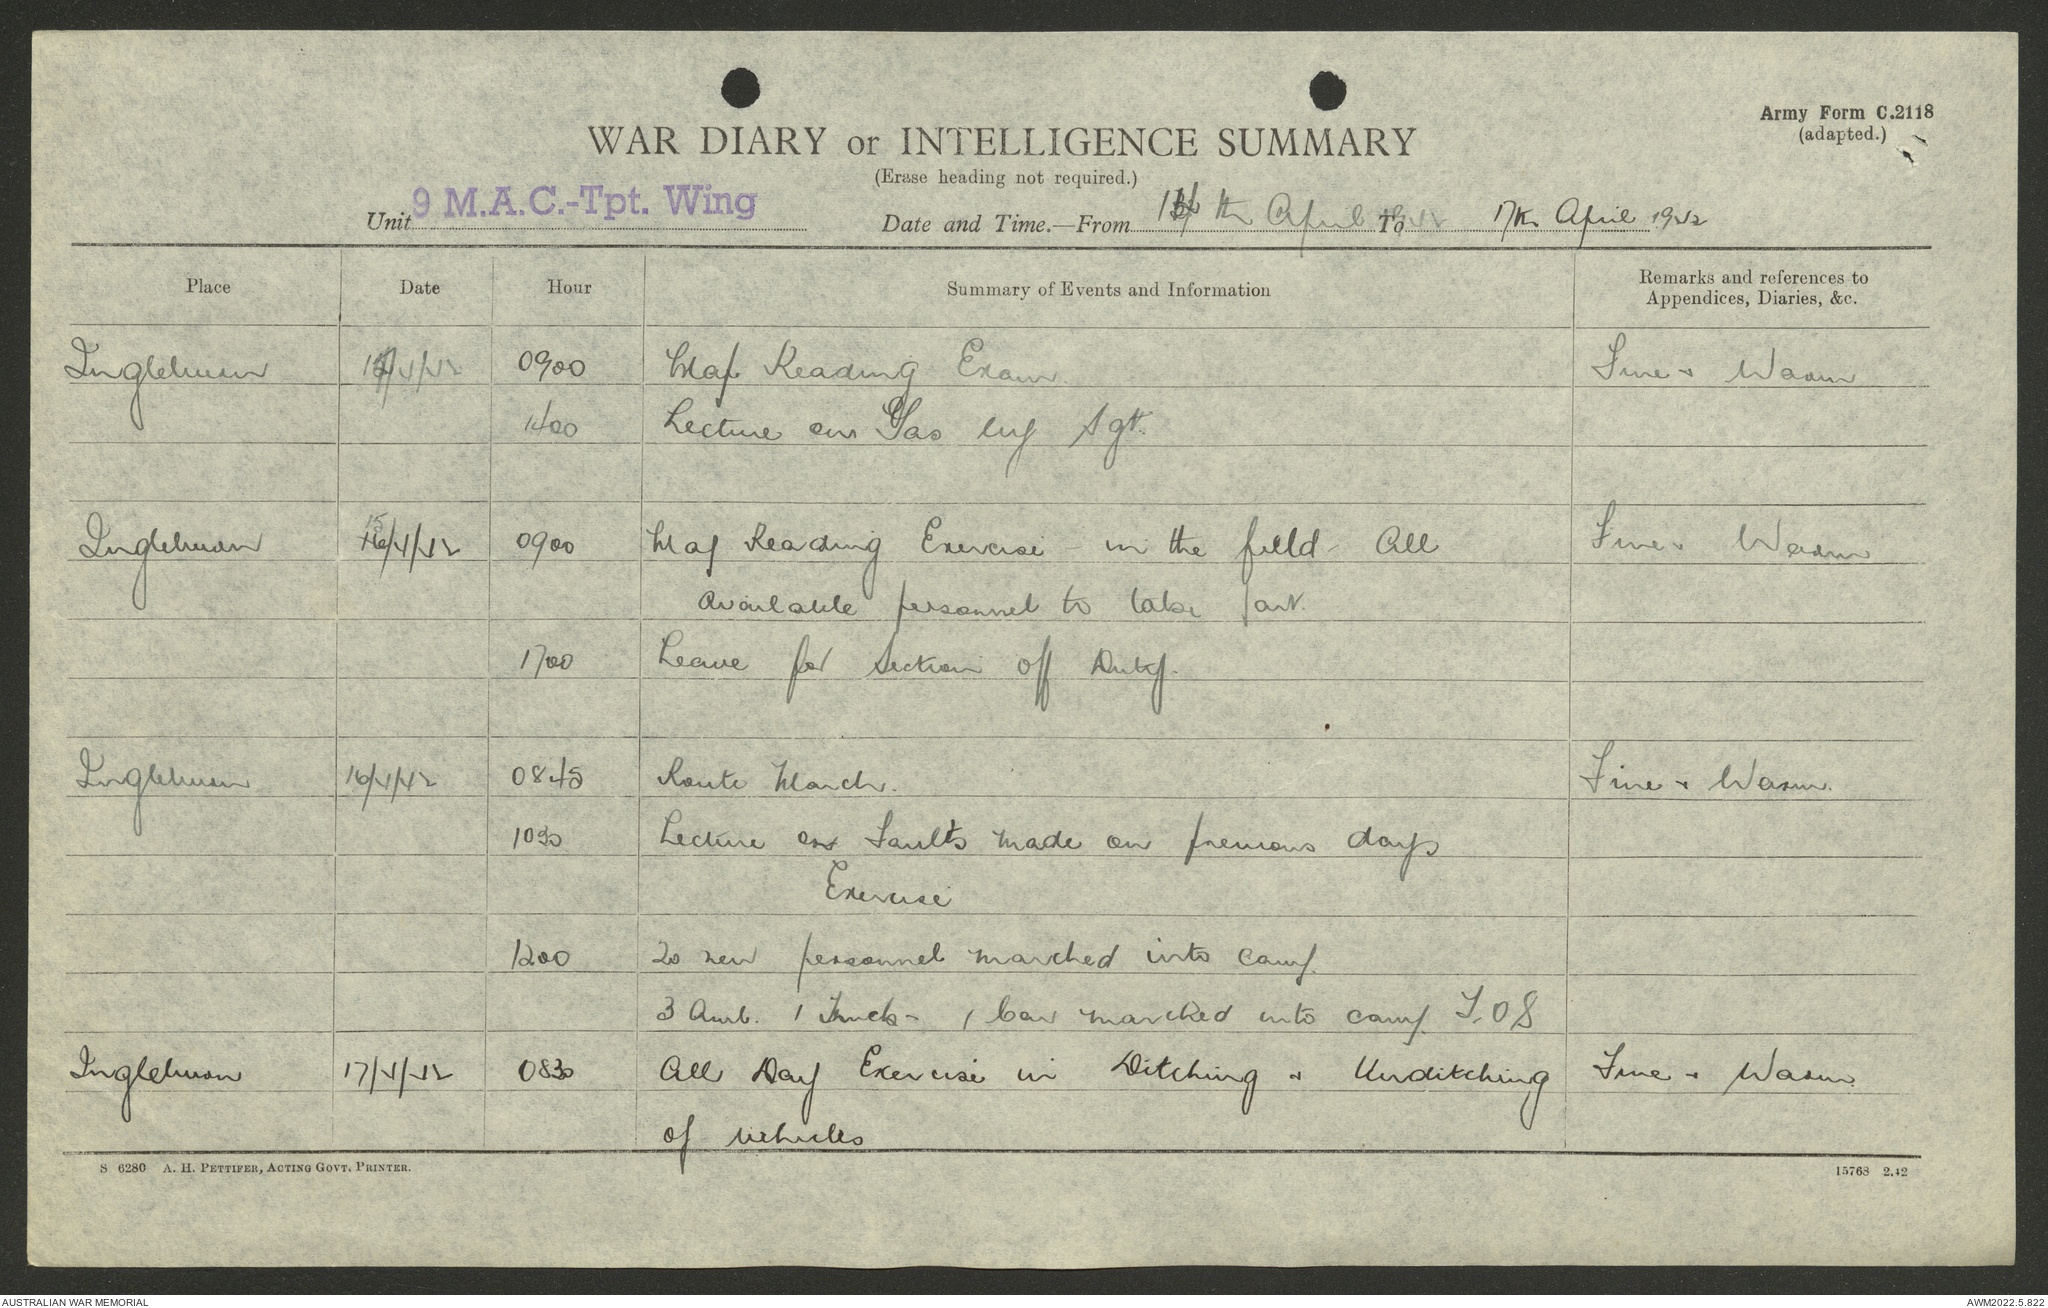 Army Form C.2118
(adapted.)
WAR DIARY or INTELLIGENCE SUMMARY
(Erase heading not required.)
Unit 9 M.A.C.-Tpt. Wing Date and Time.—From 14th April 1942 To 17th April 1942
Place Date Hour Summary of Events and Information Remarks and references to
Appendices, Diaries, &c.
Ingleburn 14/4/42 0900 Map Reading Exam. Fine & Warm
1400 Lecture on Gas by Sgt.
Ingleburn 15/4/42 0900 Map Reading Exercise - in the field - All Fine & Warm
available personnel to take part.
1700 Leave for Section off Duty.
Ingleburn 16/4/42 0845 Route March. Fine & Warm.
1030 Lecture on Faults made on previous days
Exercise
1200 20 new personnel marched into camp.
3 Amb. 1 Truck - 1 Car marched into camp T.O.S
Ingleburn 17/4/42 0830 All Day Exercise in Ditching & Unditching Fine & Warm.
of vehicles
S 6280 A. H. PETTIFER, ACTING GOVT. PRINTER. 15768 2.42
AUSTRALIAN WAR MEMORIAL AWM2022.5.822